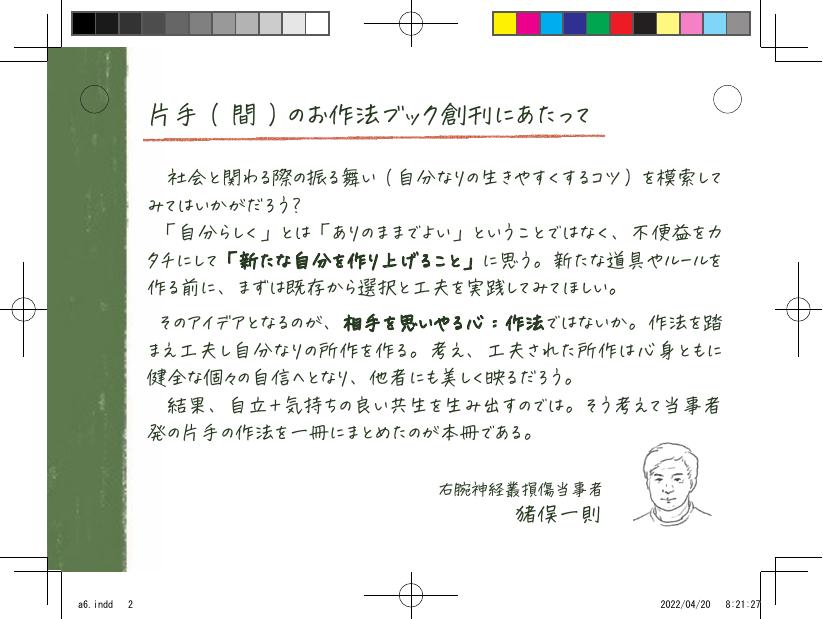 片手（間）のお作法ブック創刊にあたって
社会と関わる際の振る舞い（自分なりの生きやすくするコツ）を模索して
みてはいかがだろう？
「自分らしく」とは「ありのままでよい」ということではなく、不便益をカ
タチにして「新たな自分を作り上げること」に思う。新たな道具やルールを
作る前に、まずは既存から選択と工夫を実践してみてほしい。
そのアイデアとなるのが、相手を思いやる心：作法ではないか。作法を踏
まえ工夫し自分なりの所作を作る。考え、工夫された所作は心身ともに
健全な個々の自信へとなり、他者にも美しく映るだろう。
結果、自立＋気持ちの良い共生を生み出すのでは。そう考えて当事者
発の片手の作法を一冊にまとめたのが本冊である。
右腕神経叢損傷当事者
猪俣一則
a6.indd 2
2022/04/20 8:21:27